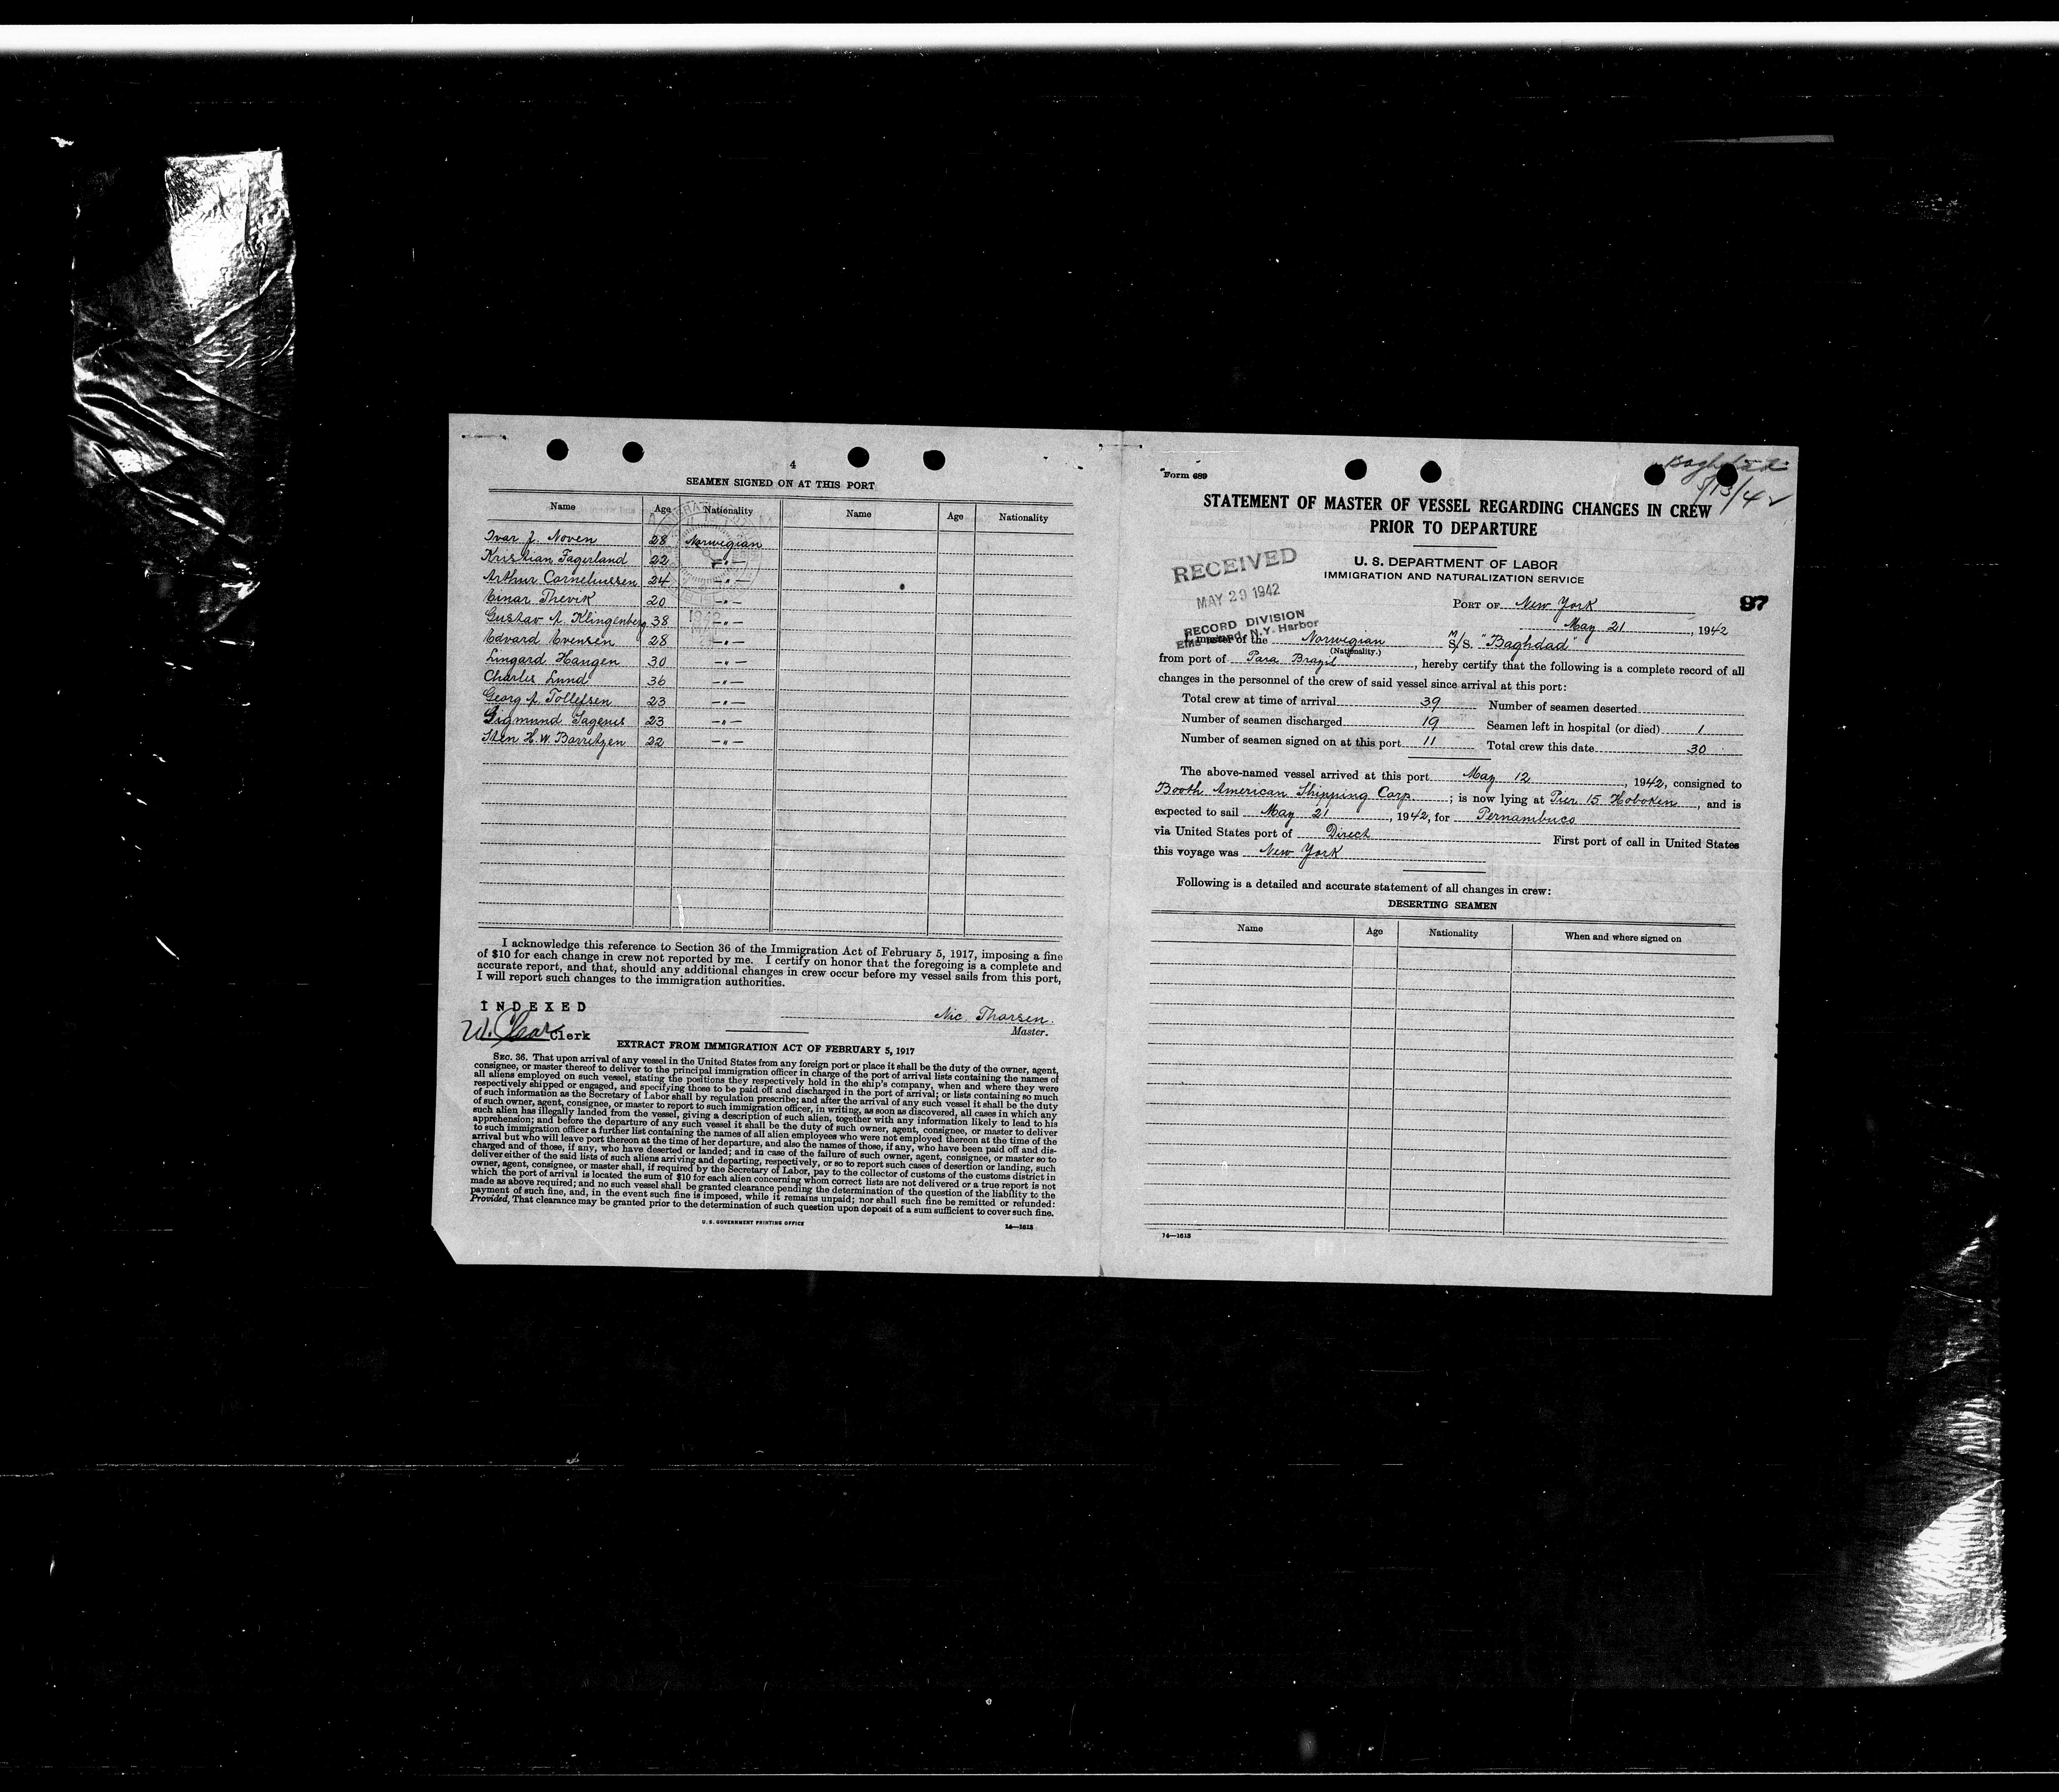 4
SEAMEN SIGNED ON AT THIS PORT
Name Age Nationality Name Age Nationality
Ivar J. Noven 28 Norwegian
Kristian Fagerland 22 —"—
Arthur Corneliussen 24 —"—
Einar Thevik 20 —"—
Gustav A. Klingenberg 38 —"—
Edvard Evensen 28 —"—
Lingard Haugen 30 —"—
Charles Lund 36 —"—
Georg A. Tollefsen 23 —"—
Sigmund Sagenes 23 —"—
Sten H.W. Borretzen 22 —"—
I acknowledge this reference to Section 36 of the Immigration Act of February 5, 1917, imposing a fine
of $10 for each change in crew not reported by me. I certify on honor that the foregoing is a complete and
accurate report, and that, should any additional changes in crew occur before my vessel sails from this port,
I will report such changes to the immigration authorities.
INDEXED
W. Clerk
Nic Thorsen
Master.
EXTRACT FROM IMMIGRATION ACT OF FEBRUARY 5, 1917
SEC. 36. That upon arrival of any vessel in the United States from any foreign port or place it shall be the duty of the owner, agent,
consignee, or master thereof to deliver to the principal immigration officer in charge of the port of arrival lists containing the names of
all aliens employed on such vessel, stating the positions they respectively hold in the ship's company, when and where they were
respectively shipped or engaged, and specifying those to be paid off and discharged in the port of arrival; or lists containing so much
of such information as the Secretary of Labor shall by regulation prescribe; and after the arrival of any such vessel it shall be the duty
of such owner, agent, consignee, or master to report to such immigration officer, in writing, as soon as discovered, all cases in which any
such alien has illegally landed from the vessel, giving a description of such alien, together with any information likely to lead to his
apprehension; and before the departure of any such vessel it shall be the duty of such owner, agent, consignee, or master to deliver
to such immigration officer a further list containing the names of all alien employees who were not employed thereon at the time of the
arrival but who will leave port thereon at the time of her departure, and also the names of those, if any, who have been paid off and dis-
charged and of those, if any, who have deserted or landed; and in case of the failure of such owner, agent, consignee, or master so to
deliver either of the said lists of such aliens arriving and departing, respectively, or so to report such cases of desertion or landing, such
owner, agent, consignee, or master shall, if required by the Secretary of Labor, pay to the collector of customs of the customs district in
which the port of arrival is located the sum of $10 for each alien concerning whom correct lists are not delivered or a true report is not
made as above required; and no such vessel shall be granted clearance pending the determination of the question of the liability to the
payment of such fine, and, in the event such fine is imposed, while it remains unpaid; nor shall such fine be remitted or refunded:
Provided, That clearance may be granted prior to the determination of such question upon deposit of a sum sufficient to cover such fine.
U. S. GOVERNMENT PRINTING OFFICE 14—1613
Baghdad
5/13/42
Form 689
STATEMENT OF MASTER OF VESSEL REGARDING CHANGES IN CREW
PRIOR TO DEPARTURE
U. S. DEPARTMENT OF LABOR
IMMIGRATION AND NATURALIZATION SERVICE
RECEIVED
MAY 29 1942
RECORD DIVISION
Ellis Island, N.Y. Harbor
97
PORT OF New York
May 21, 1942
I, master of the Norwegian M/S. "Baghdad"
(Nationality.)
from port of Para Brazil, hereby certify that the following is a complete record of all
changes in the personnel of the crew of said vessel since arrival at this port:
Total crew at time of arrival 39 Number of seamen deserted
Number of seamen discharged 19 Seamen left in hospital (or died) 1
Number of seamen signed on at this port 11 Total crew this date 30
The above-named vessel arrived at this port May 12, 1942, consigned to
Booth American Shipping Corp; is now lying at Pier 15 Hoboken, and is
expected to sail May 21, 1942, for Pernambuco
via United States port of Direct First port of call in United States
this voyage was New York
Following is a detailed and accurate statement of all changes in crew:
DESERTING SEAMEN
Name Age Nationality When and where signed on
14—1613